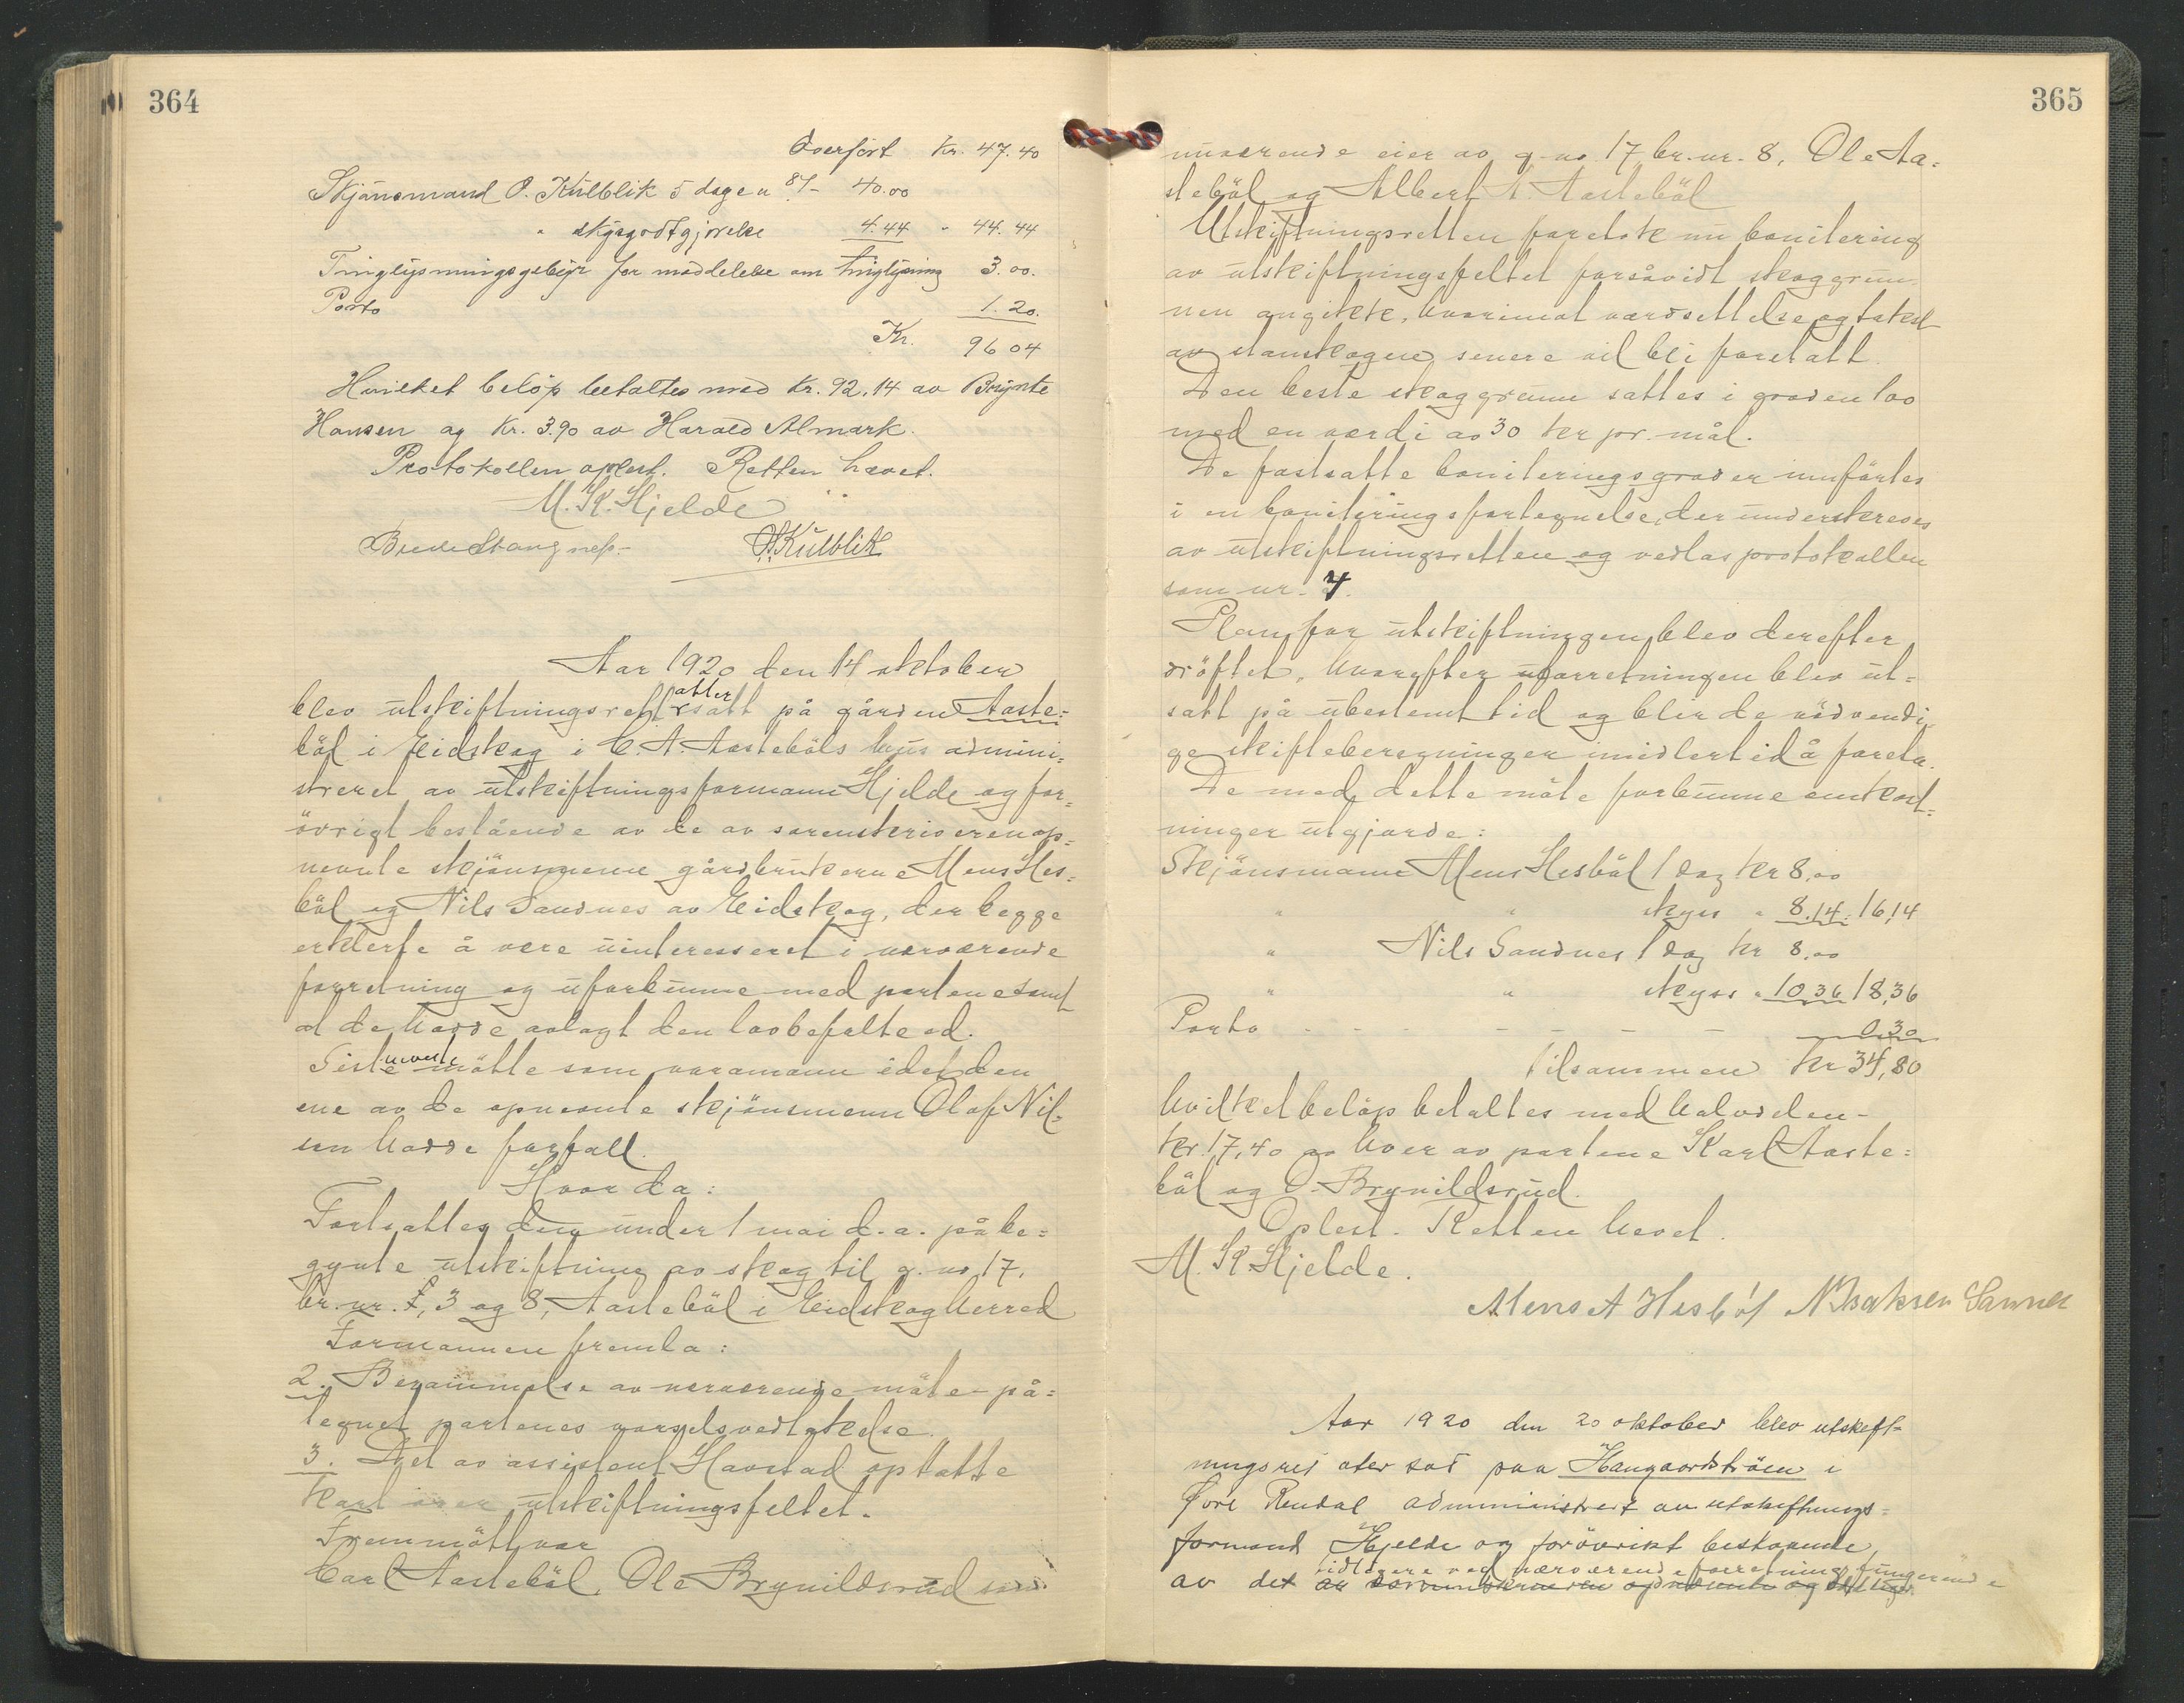 364
Overført Kr. 47.40
Skjönsmand O. Külblik 5 dage a 8/- 40.00
" skysgodtgjørelse 4.44 " 44.44
Tinglysningsgebyr for meddelelse om tinglysning 3.00.
Porto 1.20.
Kr. 96 04
Hvilket belöp betaltes med Kr. 92.14 av Brynte
Hansen og Kr. 3.90 av Harald Almark.
Protokollen oplest. Retten hævet.
M. K. Hjelde
O. Külblik
Aar 1920 den 14 oktober
blev utskiftningsrett atter satt på gården Aaste=
böl i Eidskog i C. A. Aastebøls hus admini=
streret av utskiftningsformann Hjelde og for=
övrigt bestående av de av sorenskriveren op=
nevnte skjönsmenn gårdbrukerne Mens Hes=
böl og Nils Sandnes av Eidskog, der begge
erklerte å være uinteresseret i nærværende
forretning og uforbunne med partene samt
at de hadde avlagt den lovbefalte ed.
Sistnevnte mötte som varamann idet den
ene av de opnevnte skjönsmenn Olaf Nil=
sen hadde forfall.
Hvor da:
Fortsattes den under 1 mai d. a. påbe=
gynte utskiftning av skog til g. no 17,
br. nr. 2, 3 og 8, Aasteböl i Eidskog herred
Formannen fremla:
2. Berammelse av nærværende möte på=
tegnet partenes varselsvedtakelse.
3. Det av assistent Havstad optatte
kart över utskiftningsfeltet.
Fremmött var
Carl Aasteböl, Ole Brynildsrud som
365
nuværende eier av g. no. 17 br. nr. 8, Ole Aa=
steböl og Albert A. Aasteböl
Utskiftningsretten foretok nu bonitering
av utskiftningsfeltet forsåvidt skoggrun=
nen angikk, hvorimot værdsettelse og takst
av stanskogen senere vil bli foretatt.
Den beste skoggrunn sattes i graden 100
med en værdi av 30 kr pr. mål.
De fastsatte boniteringsgrader innförtes
i en boniteringsfortegnelse, der underskreves
av utskiftningsretten og vedlas protokollen
som nr. 4.
Plan for utskiftningen blev derefter
dröftet, hvorefter forretningen blev ut=
satt på ubestemt tid og blir de nödvendi
ge skifteberegninger imidlertid å foreta.
De med dette möte forbunne omkost=
ninger utgjorde:
Skjönsmann Mens Hesböl 1 dag kr 8,00
" " skyss " 8.14 16,14
" Nils Sandnes 1 dag kr 8,00
" " skyss " 10,36 18,36
Porto - - - - - - - 0,30
tilsammen kr 34,80
hvilket belöp betaltes med halvdelen -
kr. 17,40 av hver av partene Karl Aaste=
böl og O. Brynildsrud.
Oplest. Retten hevet.
M. K. Hjelde.
Mens A Hesböl N Isaksen Sannes
Aar 1920 den 20 oktober blev utskift-
ningsret ater sat paa Haugaardströen i
Øvre Rendal administrert av utskiftnings=
formand Hjelde og forövrikt bestaaende
tidligere ved nærværende forretning fungerende
av det av sorenskriveren opnævnte og